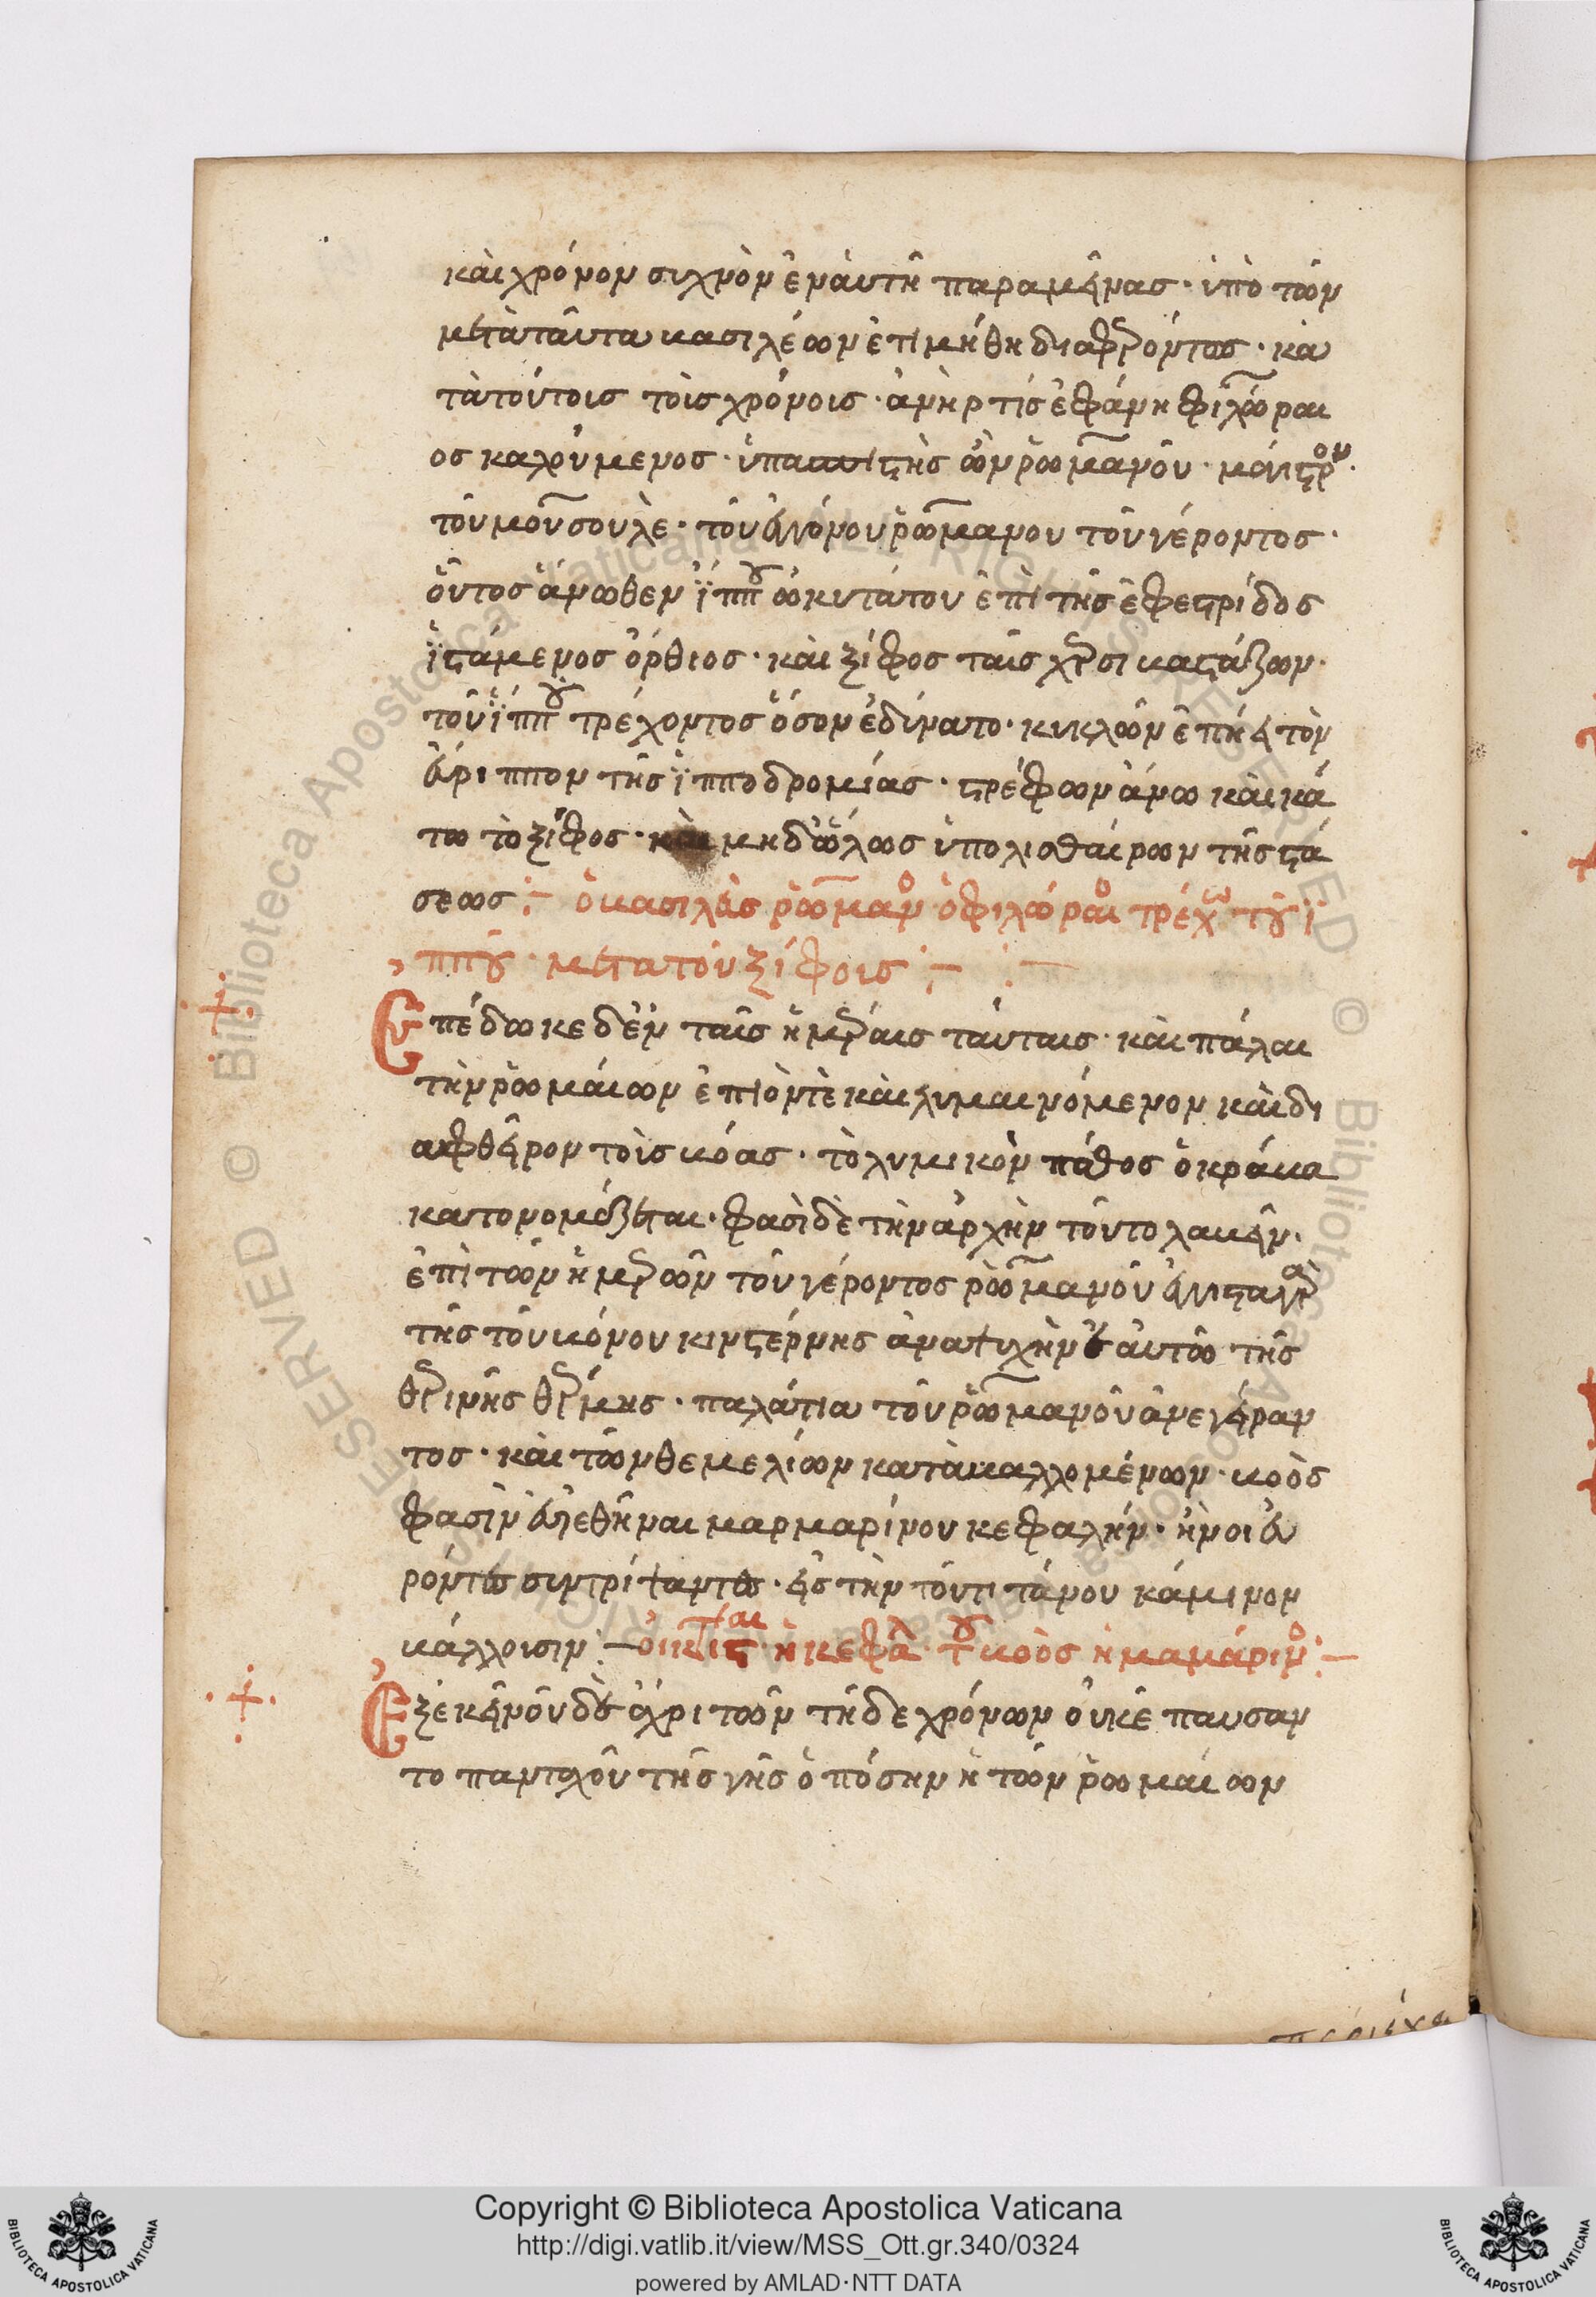 καὶ χρόνον συχνὸν ἐν ἀυτῆ παραμείνας · ὑπὸ τῶν
μετὰ ταῦτα βασιλέων ἐτιμήθη διαφερόντως · κα
τὰ τούτοις τοῖς χρόνοις · ἀνήρ τίς ἐφάνη φιλώραι
ος καλούμενος · ὑπασπιστὴς ὢν ῥωμανοῦ · μάγιστρον.
τοῦ μουσουλὲ · τοῦ ἐγγόνου ῥωμανου τοῦ γέροντος ·
οὗτος ἄνωθεν ἵππου ὠκυτάτου ἐπὶ τῆς ἐφεστρίδος
ἱστάμενος ὄρθιος · καὶ ξίφος ταῖς χερσὶ βαστάζων ·
τοῦ ἵππου τρέχοντος ὅσον ἐδύνατο · κυκλῶν ἐπήει τὸν
εὔριππον τῆς ἱπποδρομίας · στρέφων ἄνω καὶ κά
τω τὸ ξίφος · καὶ μηδ' ὅλως ὑπολισθαίρων τῆς στά
σεως :– ὁ βασιλεὺς ῥωμανὸ ὁ φιλώραιο τρέχω του ἵ
ππου · μετα τοῦ ξίφοις :–
Επέδωκε δ' ἐν ταῖς ἡμέραις ταύταις · καὶ πάλαι
τὴν ῥωμαίων ἐπιόντε καὶ λυμαινόμενον καὶ δι
αφθεῖρον τοὶς βόας · τὸ λυμικὸν πάθος ὁ κράβα
κατονομάζεται · φασὶ δὲ τὴν ἀρχὴν τοῦτο λαβεῖν ·
ἐπὶ τῶν ἡμερῶν τοῦ γέροντος ῥωμανοῦ
τῆς τοῦ βόνου κινστέρνης ἀναψυχὴν ἑαυτῶ τῆς
θερινῆς θέρμης · παλάτια τοῦ ῥωμανοῦ ἀνεγείραν
τος · καὶ τῶν θεμελίων καταβαλλομένων · βοὸς
φασὶν εὑρεθῆναι μαρμαρίνου κεφαλήν · ἣν οἱ εὑ
ρόντες συντρίψαντες · εἰς τὴν τοῦ τιτάνου κάμινον
βάλλουσιν :– ἡ κεφαλ του βοὸς ἡ μαμάρινο :–
Εξ ἐκείνου δ' οὖν ἄχρι τῶν τῆδε χρόνων οὐκ ἐπαυσαν
το πανταχοῦ τῆς γῆς ὁπόσην ἡ τῶν ῥωμαίων
Copyright © Biblioteca Apostolica Vaticana
http://digi.vatlib.it/view/MSS_Ott.gr.340/0324
powered by AMLAD·NTT DATA